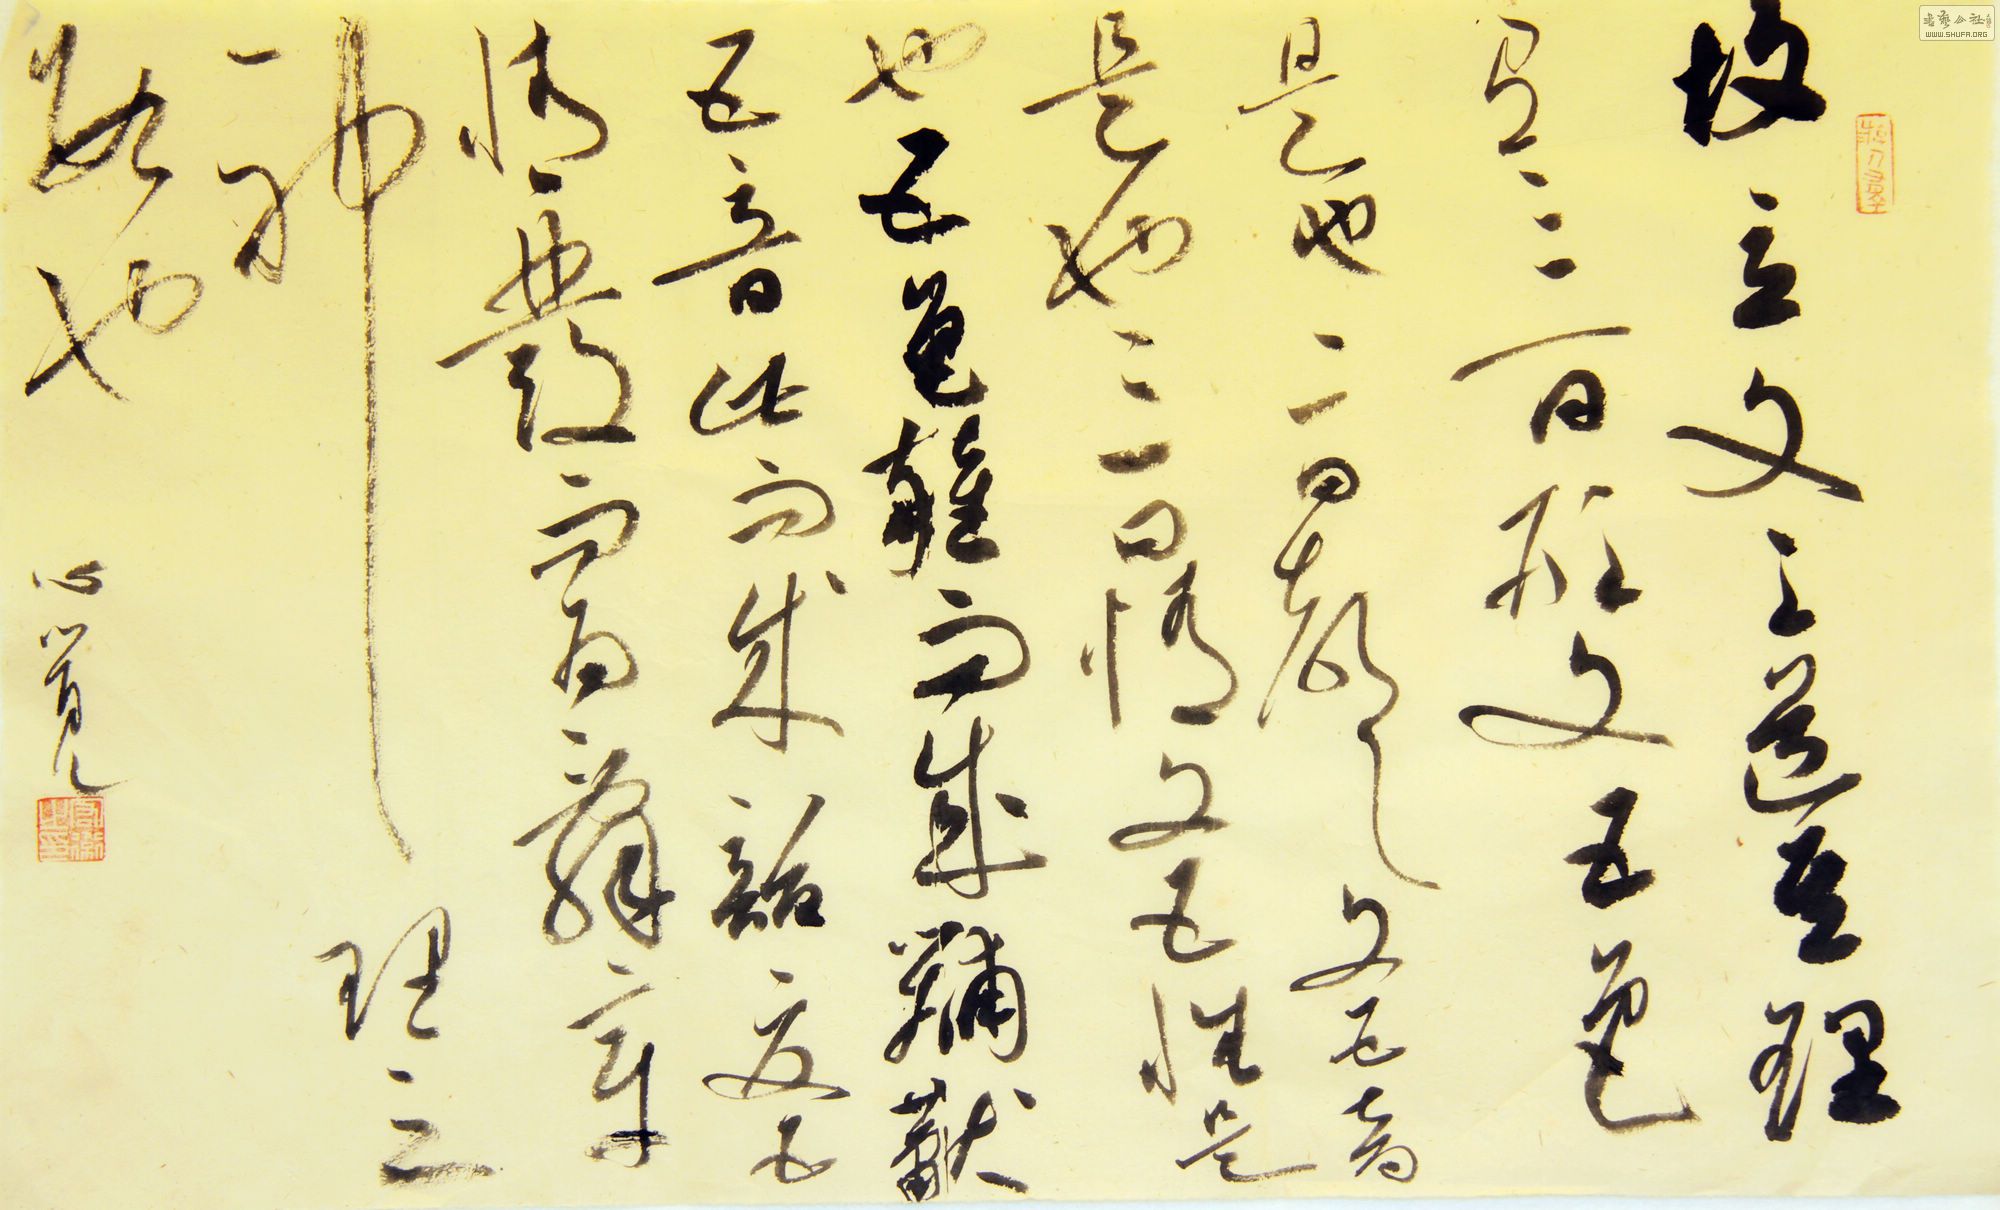 故立文之道其理
有三一曰形文五色
是也二曰聲文五音
是也三曰情文五性是
也五色雜而成黼黻
五音比而成韶夏五
情發而為辭章
神理之
數也
心覺
書藝公社
WWW.SHUFA.ORG